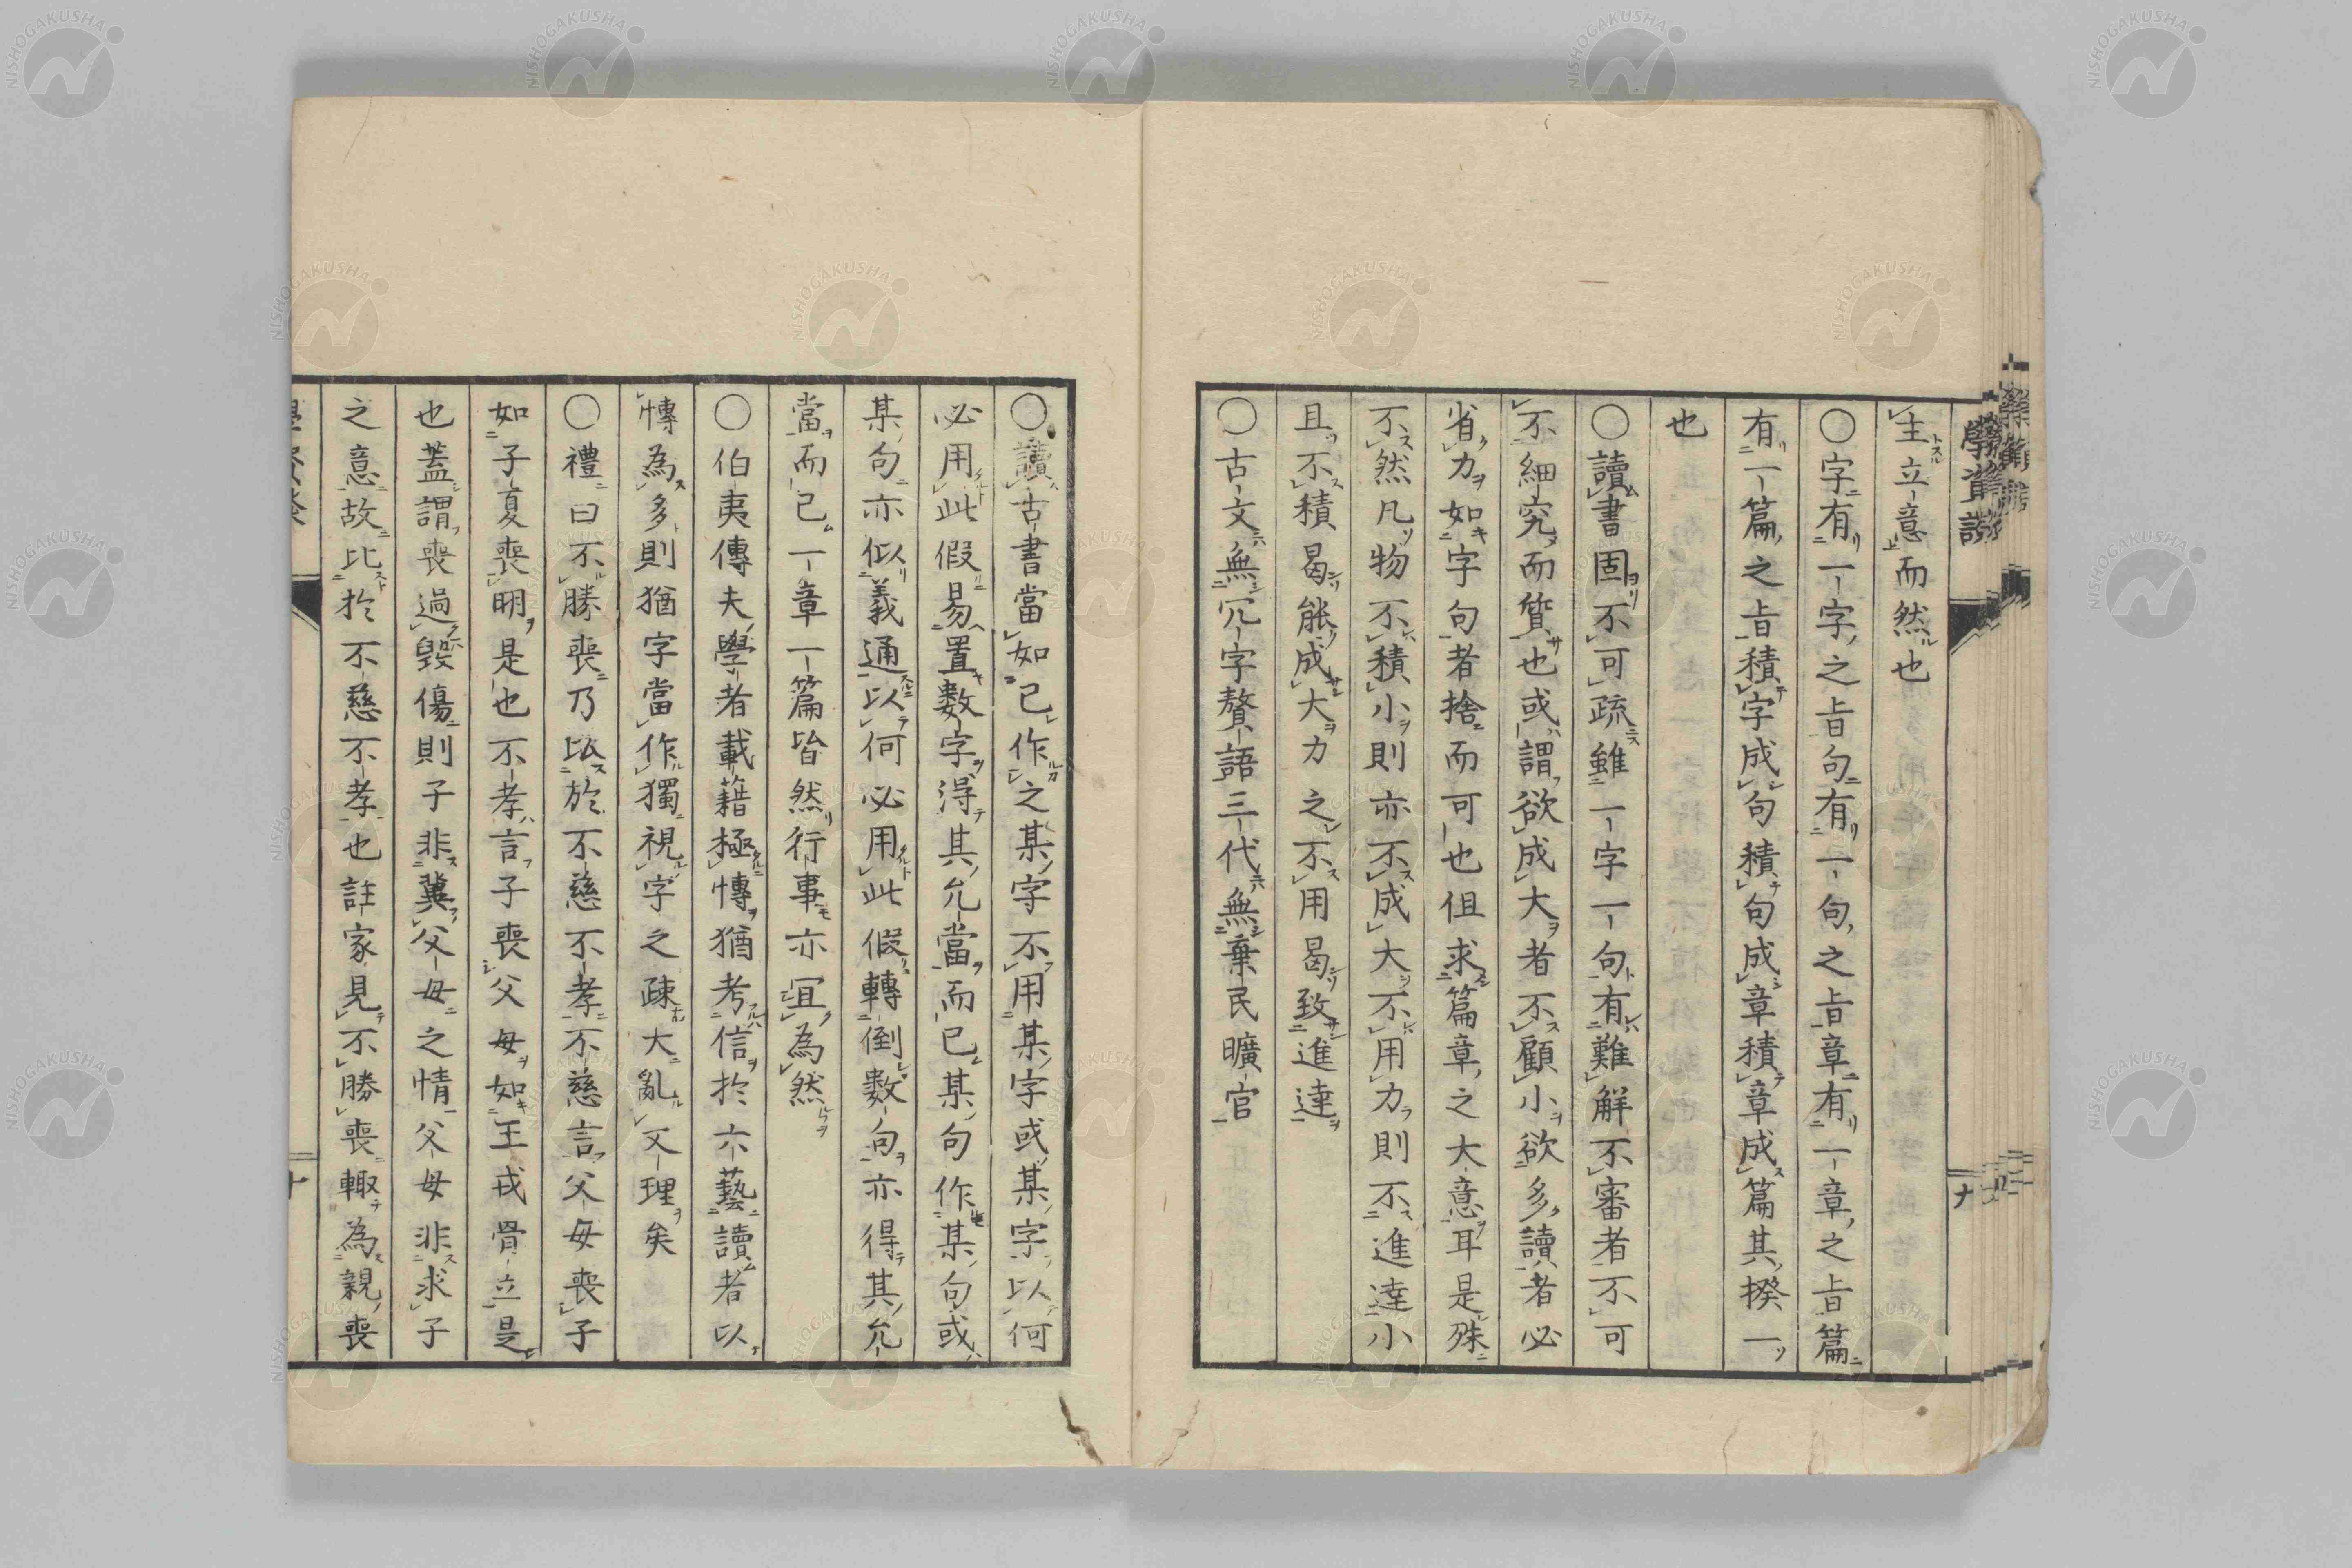 主立意而然也
〇字有一字之旨句有一句之旨章有一章之旨篇
有一篇之旨積字成句積句成章積章成篇其揆一
也
〇讀書固不可疏雖一字一句有難解不審者不可
不細究而質也或謂欲成大者不顧小欲多讀者必
省力如字句者捨而可也但求篇章之大意耳是殊
不然凡物不積小則亦不成大不用力則不進達小
且不積曷能成大力之不用曷致進達
〇古文無冗字贅語三代無棄民曠官
〇讀古書當如已作之某字不用某字或某字以何
必用此假易置數字得其允當而已某句作某句或
某句亦似義通以何必用此假轉倒數句亦得其允
當而已一章一篇皆然行事亦宜為然
〇伯夷傳夫學者載籍極慱猶考信於六藝讀者以
慱為多則猶字當作獨視字之疎大亂文理矣
〇禮曰不勝喪乃比於不慈不孝不慈言父母喪子
如子夏喪明是也不孝言子喪父母如王戎骨立是
也蓋謂喪過毀傷則子非冀父母之情父母非求子
之意故比於不慈不孝也註家見不勝喪輙為親喪
學資譚
十
NISHOGAKUSHA